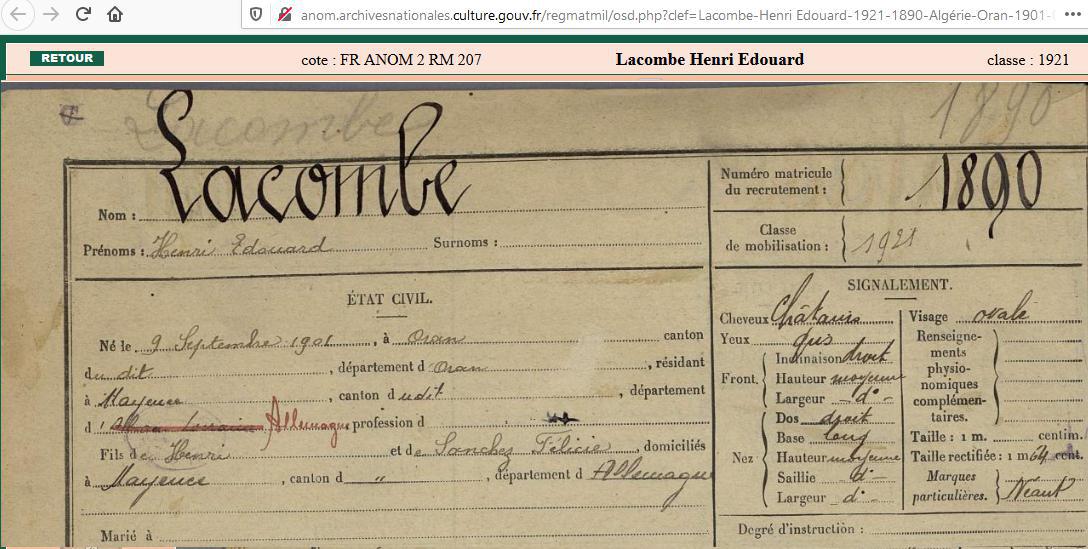 anom.archivesnationales.culture.gouv.fr/regmatmil/osd.php?clef=Lacombe-Henri Edouard-1921-1890-Algérie-Oran-1901-0
RETOUR
cote : FR ANOM 2 RM 207
Lacombe Henri Edouard
classe : 1921
Lacombe
1890
Nom : Lacombe
Prénoms : Henri Edouard Surnoms :
Numéro matricule du recrutement : 1890
Classe de mobilisation : 1921
ÉTAT CIVIL.
Né le 9 Septembre 1901, à Oran canton
du dit, département d Oran, résidant
à Mayence, canton dudit, département
d'Alsace Lorraine Allemagne profession d
Fils de Henri et de Sanchez Félicie, domiciliés
à Mayence, canton d „, département d Allemagne
Marié à
SIGNALEMENT.
Cheveux Châtains
Yeux gris
Front. Inclinaison droit
Hauteur moyenne
Largeur d°
Nez Dos droit
Base long
Hauteur moyenne
Saillie d°
Largeur d°
Visage ovale
Renseignements physionomiques complémentaires.
Taille : 1 m. centim.
Taille rectifiée : 1 m 64 cent.
Marques particulières. Néant
Degré d'instruction :